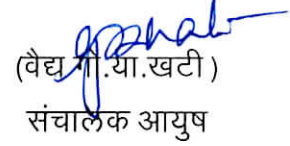 (वैद्य गो.या.खटी)
संचालक आयुष